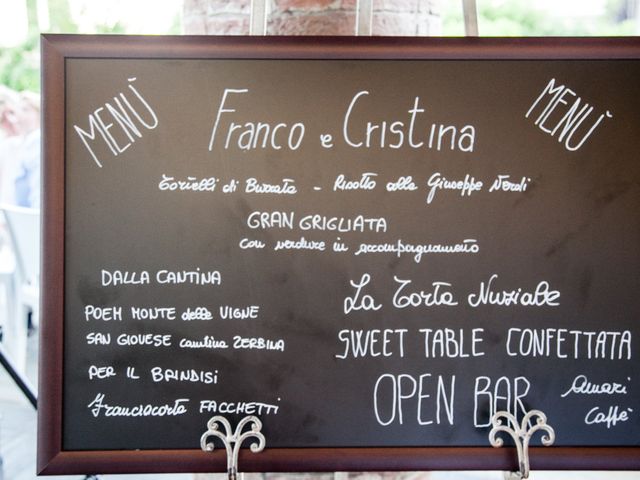 MENÙ
Franco e Cristina
MENÙ
Tortelli di Burrata - Risotto alla Giuseppe Verdi
GRAN GRIGLIATA
con verdure in accompagnamento
DALLA CANTINA
POEM MONTE delle VIGNE
SAN GIOVESE cantina ZERBINA
PER IL BRINDISI
Franciacorta FACCHETTI
La Torta Nuziale
SWEET TABLE CONFETTATA
OPEN BAR
Amari
Caffè